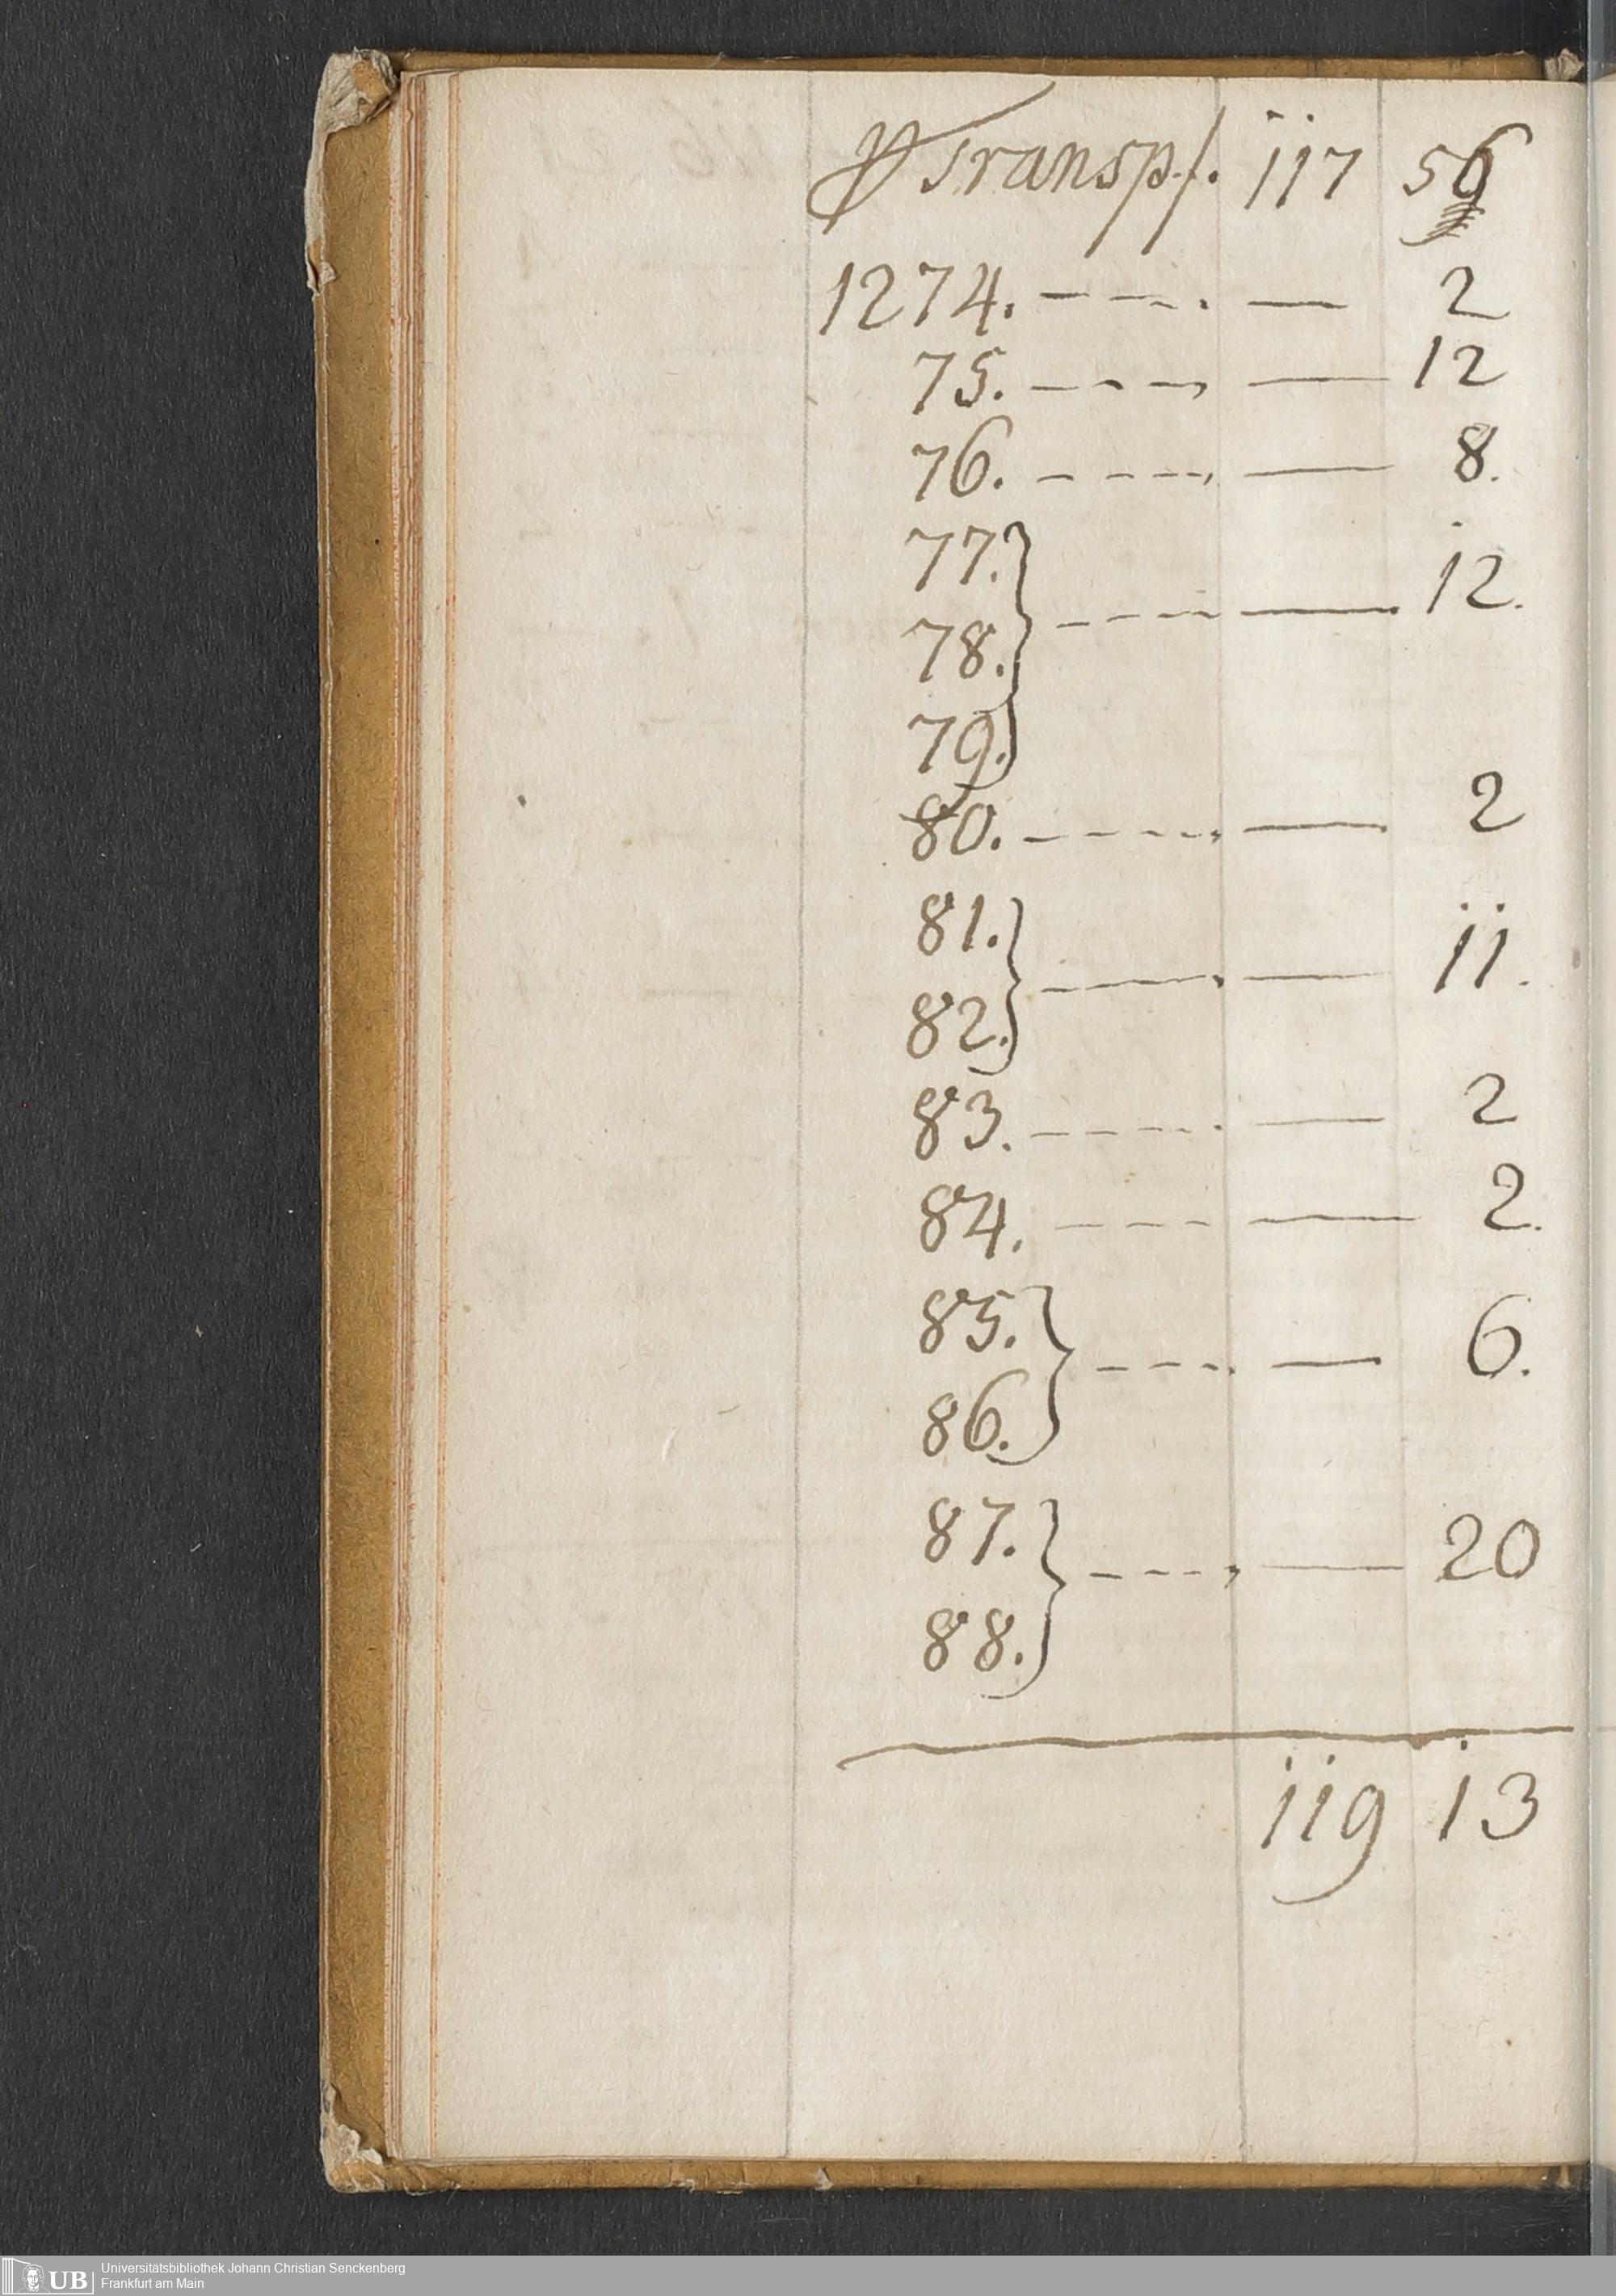 ₰ Transp/. 117 56
1274. - - - . — 2
75. - - - , — 12
76. - - - - , — 8.
77.
78. } - - - - — 12.
79.
80. - - - - , — 2
81.
82. } - - - , — 11.
83. - - - - . — 2
84. - - - - — 2.
85.
86. } - - - . — 6.
87.
88. } - - - - , — 20
119 13
UB Universitätsbibliothek Johann Christian Senckenberg
Frankfurt am Main